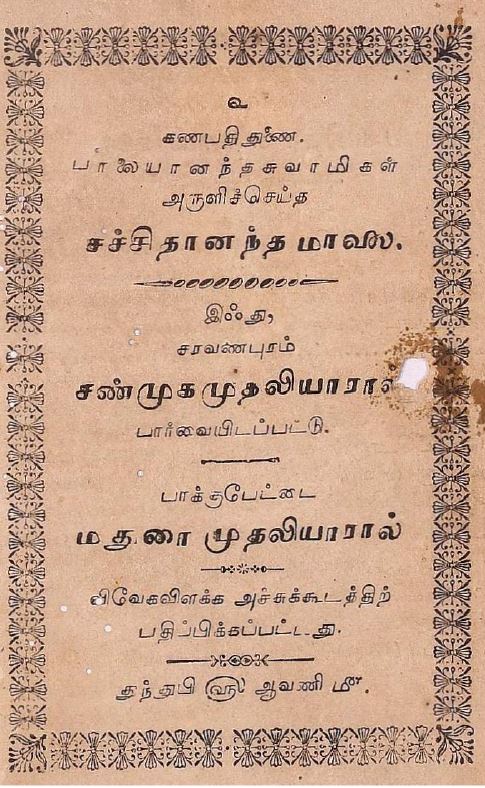 உ
கணபதிதுணை.
பாலையானந்தசுவாமிகள்
அருளிச்செய்த
சச்சிதானந்தமாலை.
இஃது,
சரவணபுரம்
சண்முகமுதலியாரால்
பார்வையிடப்பட்டு.
பாக்குபேட்டை
மதுரை முதலியாரால்
விவேகவிளக்க அச்சுக்கூடத்திற்
பதிப்பிக்கப்பட்டது.
துந்துபி ௵ ஆவணி ௴.